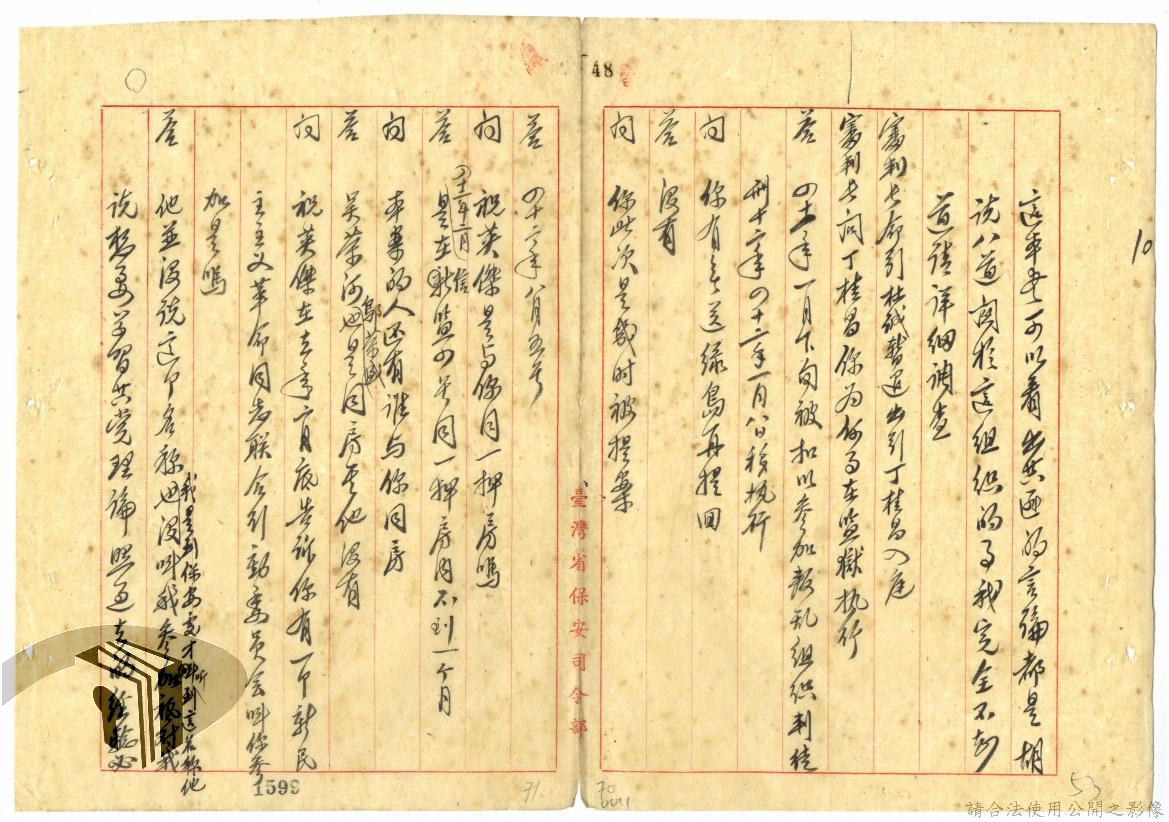 48
10
這本書可以看出共匪的言論都是胡
說八道關於這組織的事我完全不知
道請詳細調查
審判長命引杜誠暫退出引丁桂昌入庭
審判長問丁桂昌你為何事在監獄執行
答 四十一年一月下旬被扣以參加叛乱組織判徒
刑十二年四十二年一月八日移執行
問 你有無送綠島再提回
答 沒有
問 你此次是幾时被提案
臺灣省保安司令部
答 四十二年八月五号
問 祝英傑是与你同一押房嗎
答 四十三年二月是在新監四号同一押房內不到一个月
問 本案的人还有誰与你同房
答 吴榮 鄔 也是同房其他沒有
問 祝英傑在去年六月底告訴你有一个新民
主主义革命同志联合行動委員会叫你參
加是嗎
答 他並沒說这个名称也沒叫我參加
我是到保安處才听到這名称他
說想要学習共党理論照过去的經驗
1599
71
70
53
請合法使用公開之影像